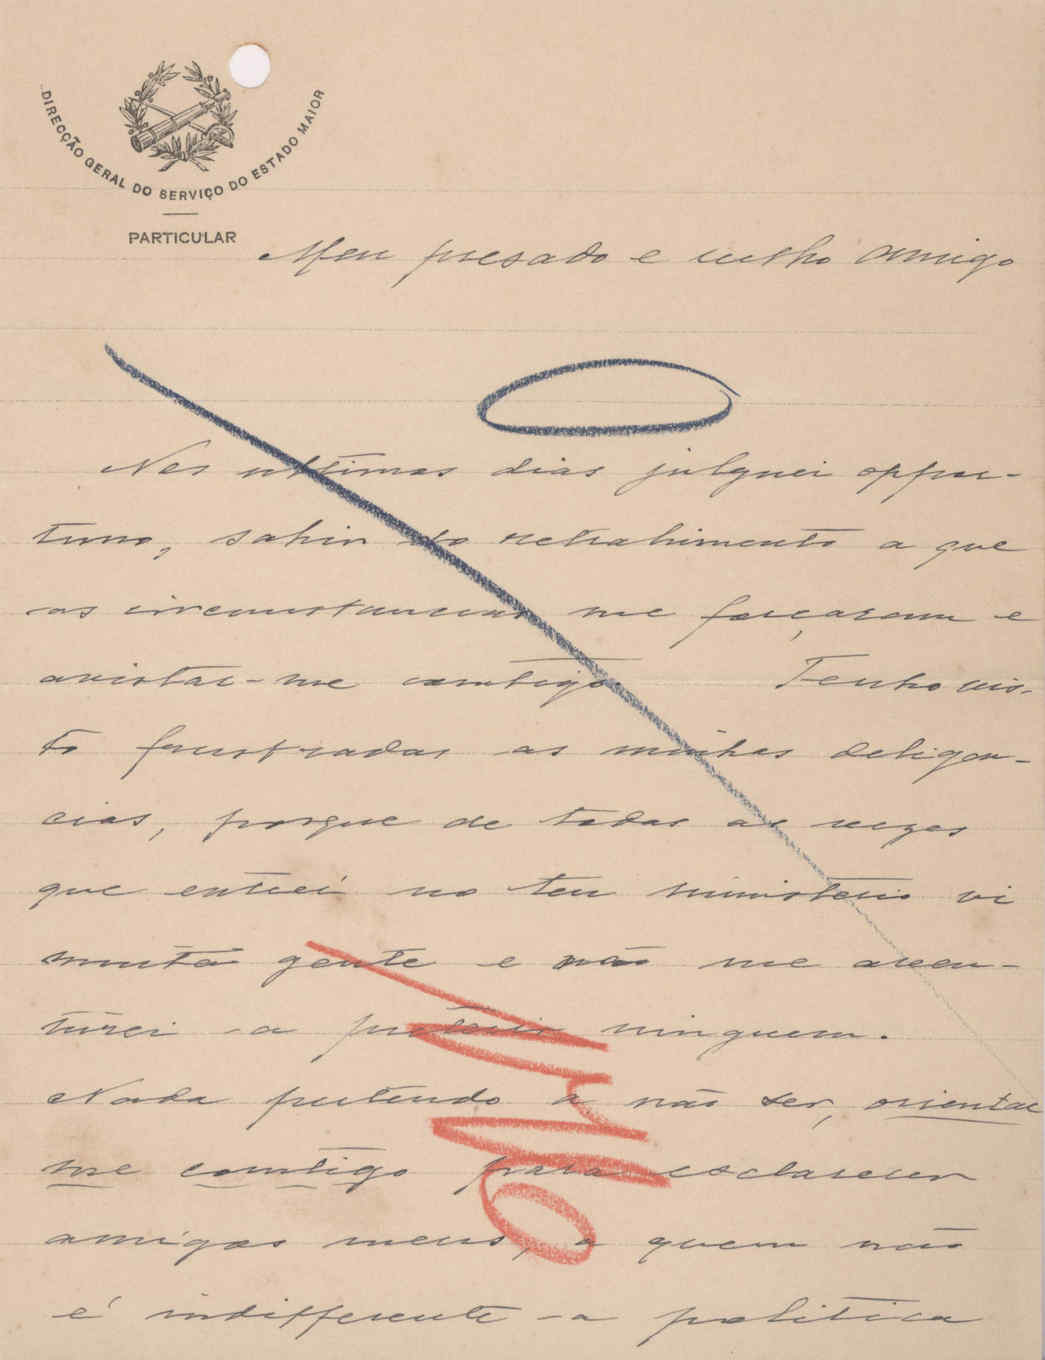 DIRECÇÃO GERAL DO SERVIÇO DO ESTADO MAIOR
PARTICULAR
Meu presado e velho amigo
Nos ultimos dias julguei oppor-
tuno, sahir do retrahimento a que
as circumstancias me forçaram e
avistar-me comtigo. Tenho vis-
to frustradas as minhas deligen-
cias, porque de todas as vezes
que entrei no teu ministerio vi
muita gente e não me aven-
túrei a preterir ninguem.
Nada pretendo a não ser, orientar
me comtigo para esclarecer
amigos meus, a quem não
é indifferente a politica